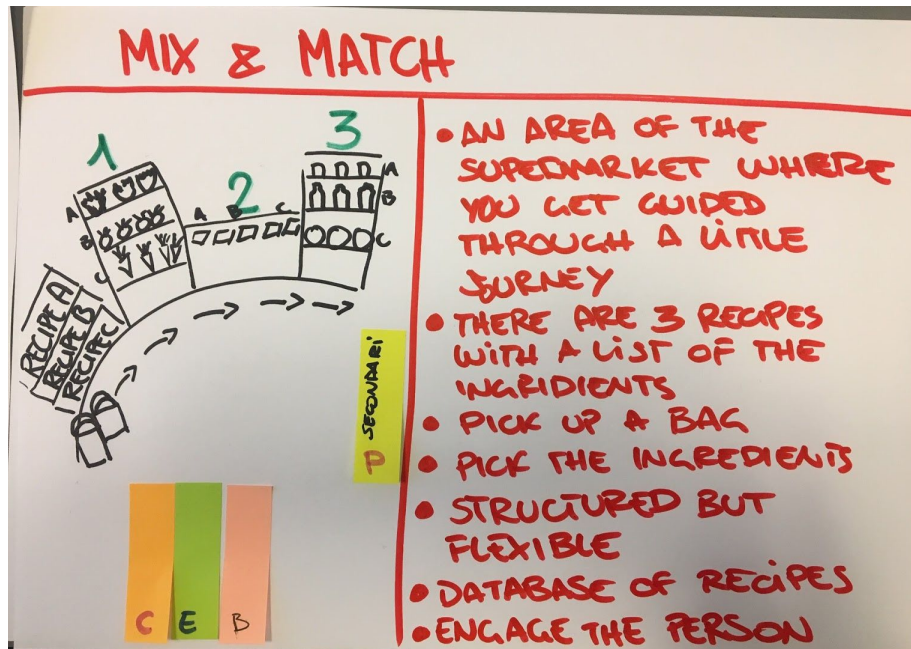 MIX & MATCH
1
2
3
A
B
C
A B C
A
B
C
RECIPE A
RECIPE B
RECIPE C
P SECONDARI
C
E
B
• AN AREA OF THE
SUPERMARKET WHERE
YOU GET GUIDED
THROUGH A LITTLE
JOURNEY
• THERE ARE 3 RECIPES
WITH A LIST OF THE
INGRIDIENTS
• PICK UP A BAG
• PICK THE INGREDIENTS
• STRUCTURED BUT
FLEXIBLE
• DATABASE OF RECIPES
• ENGAGE THE PERSON